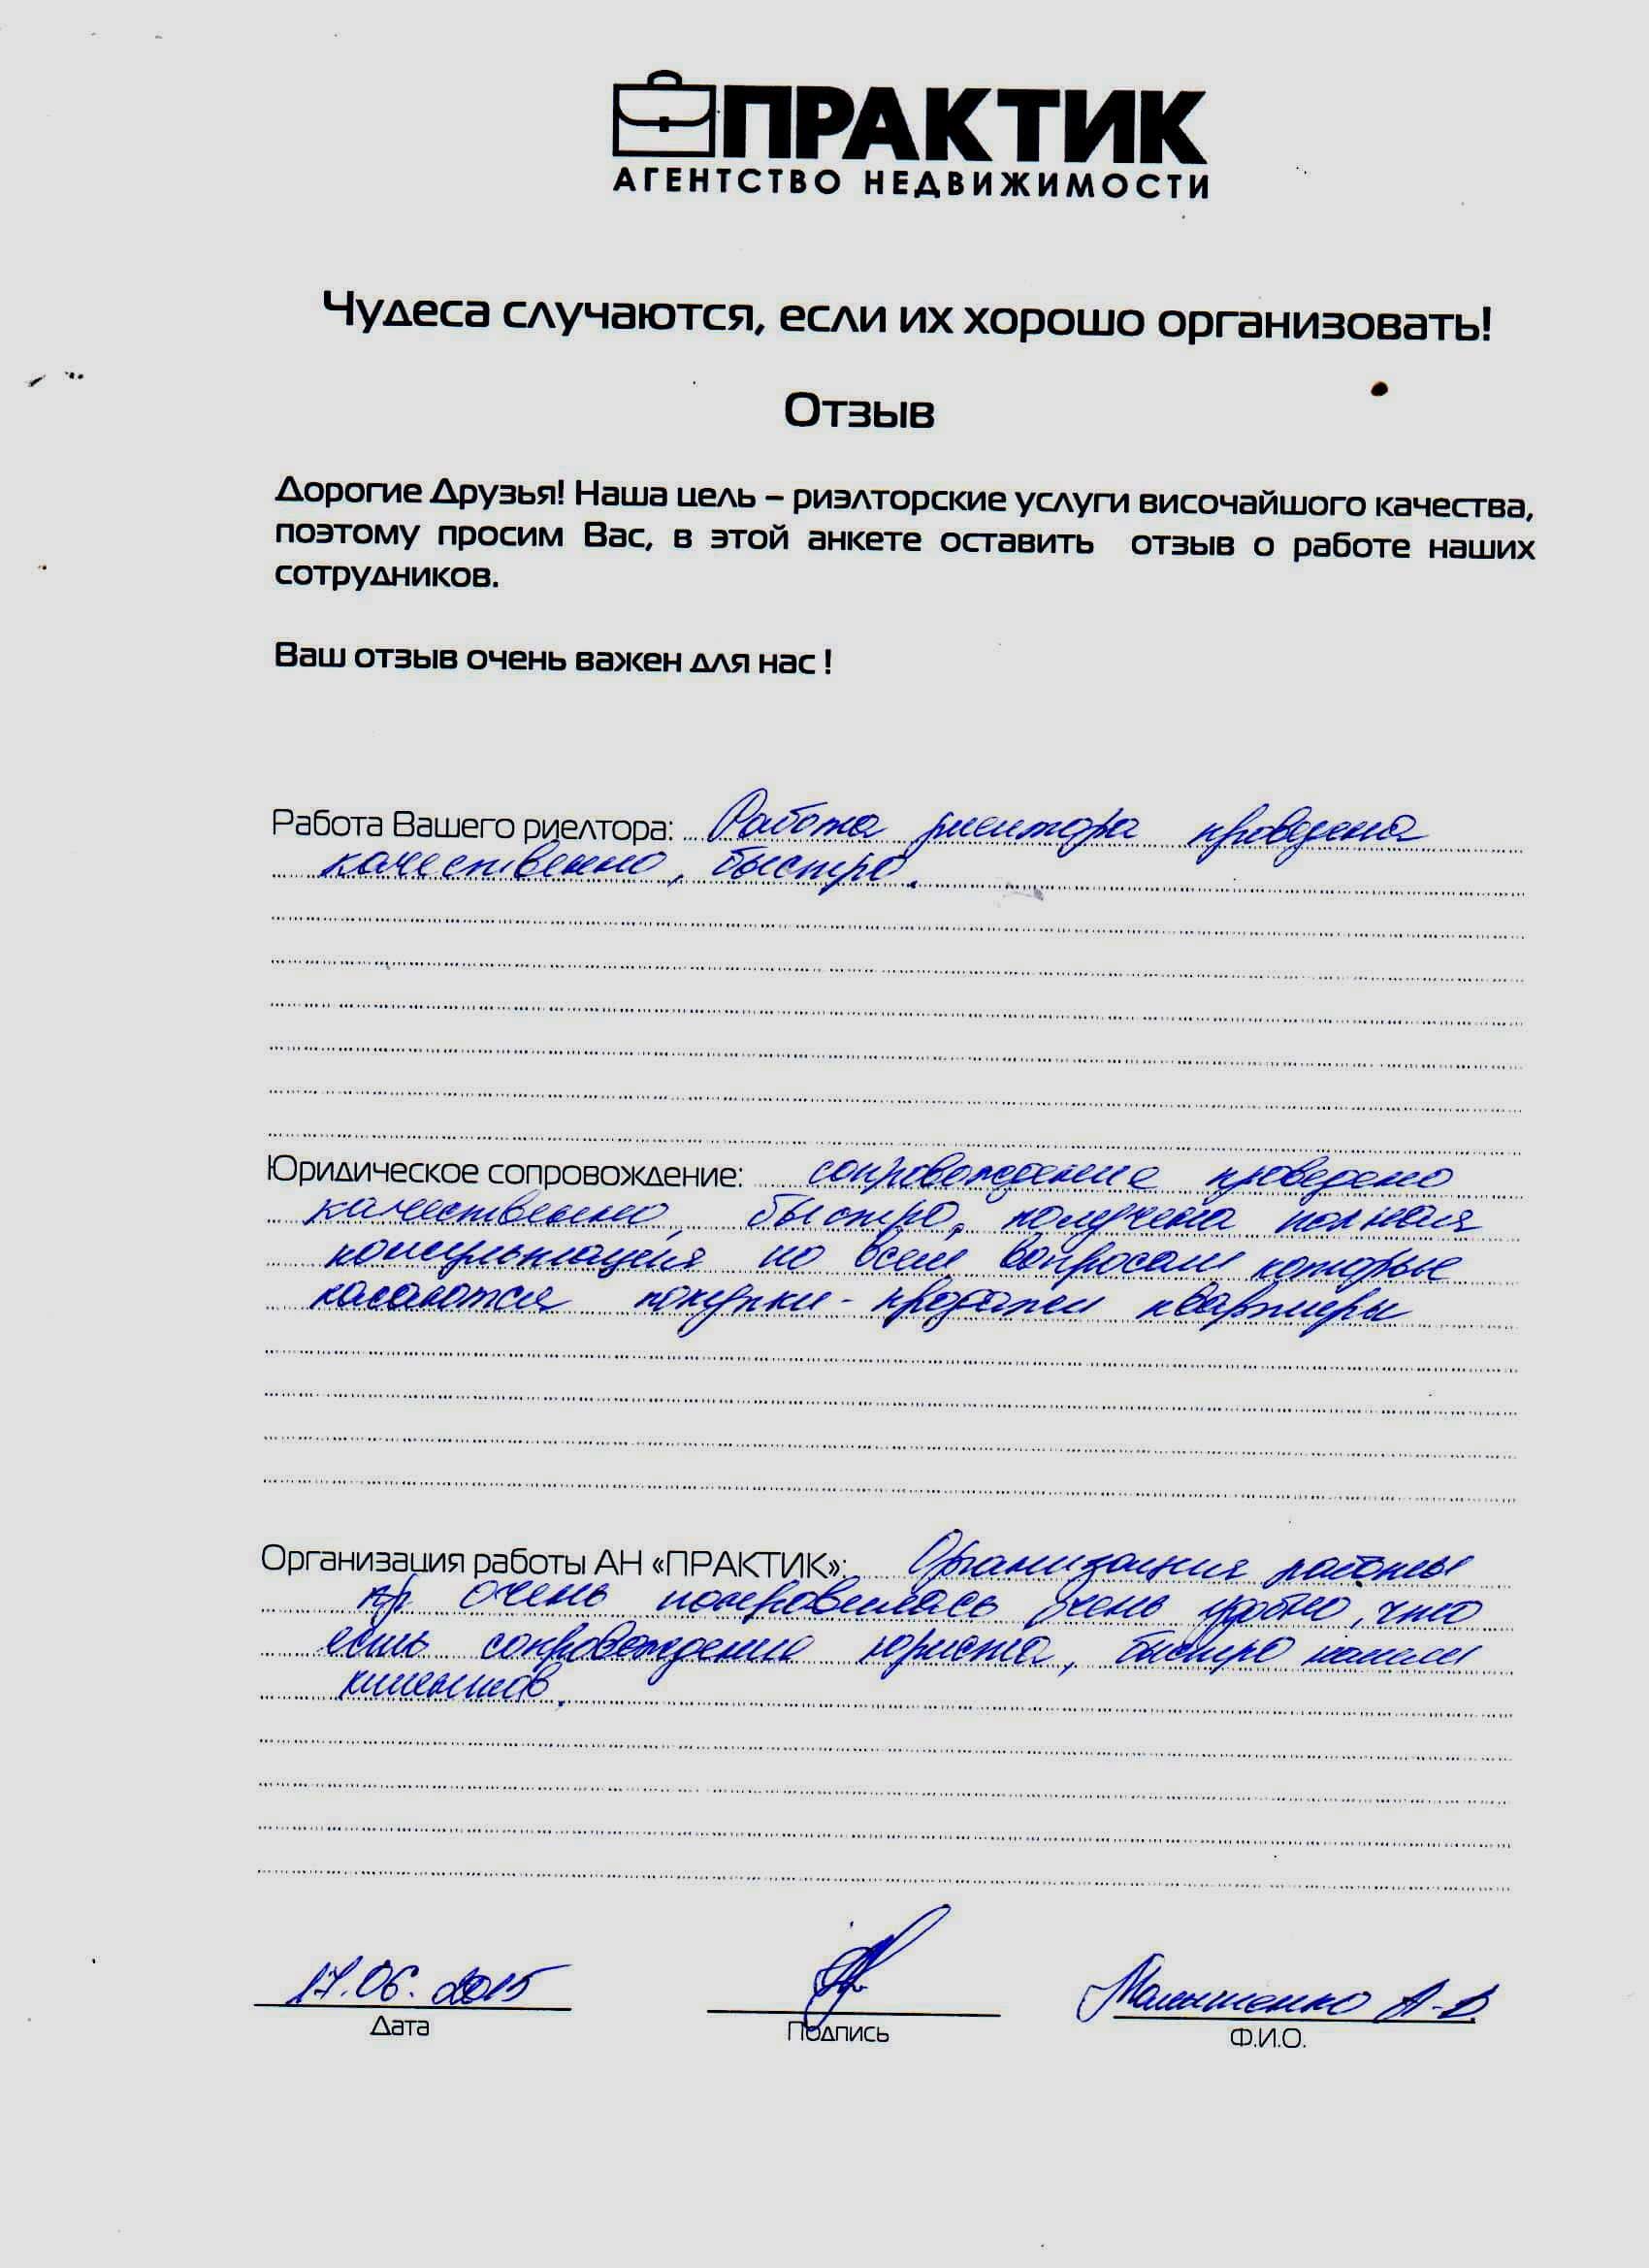 ПРАКТИК
АГЕНТСТВО НЕДВИЖИМОСТИ
Чудеса случаются, если их хорошо организовать!
Отзыв
Дорогие Друзья! Наша цель – риэлторские услуги височайшого качества,
поэтому просим Вас, в этой анкете оставить отзыв о работе наших
сотрудников.
Ваш отзыв очень важен для нас !
Работа Вашего риелтора: Работа риелтора проведена
качественно, быстро.
Юридическое сопровождение: сопровождение проведено
качественно, быстро, получена полная
консультация по всем вопросам которые
касаются покупки-продажи квартиры
Организация работы АН «ПРАКТИК»: Организация работы
очень понравилась очень удобно, что
есть сопровождение юриста, быстро нашли
17.06.2015
Дата
Подпись
Малышенко А-В.
Ф.И.О.